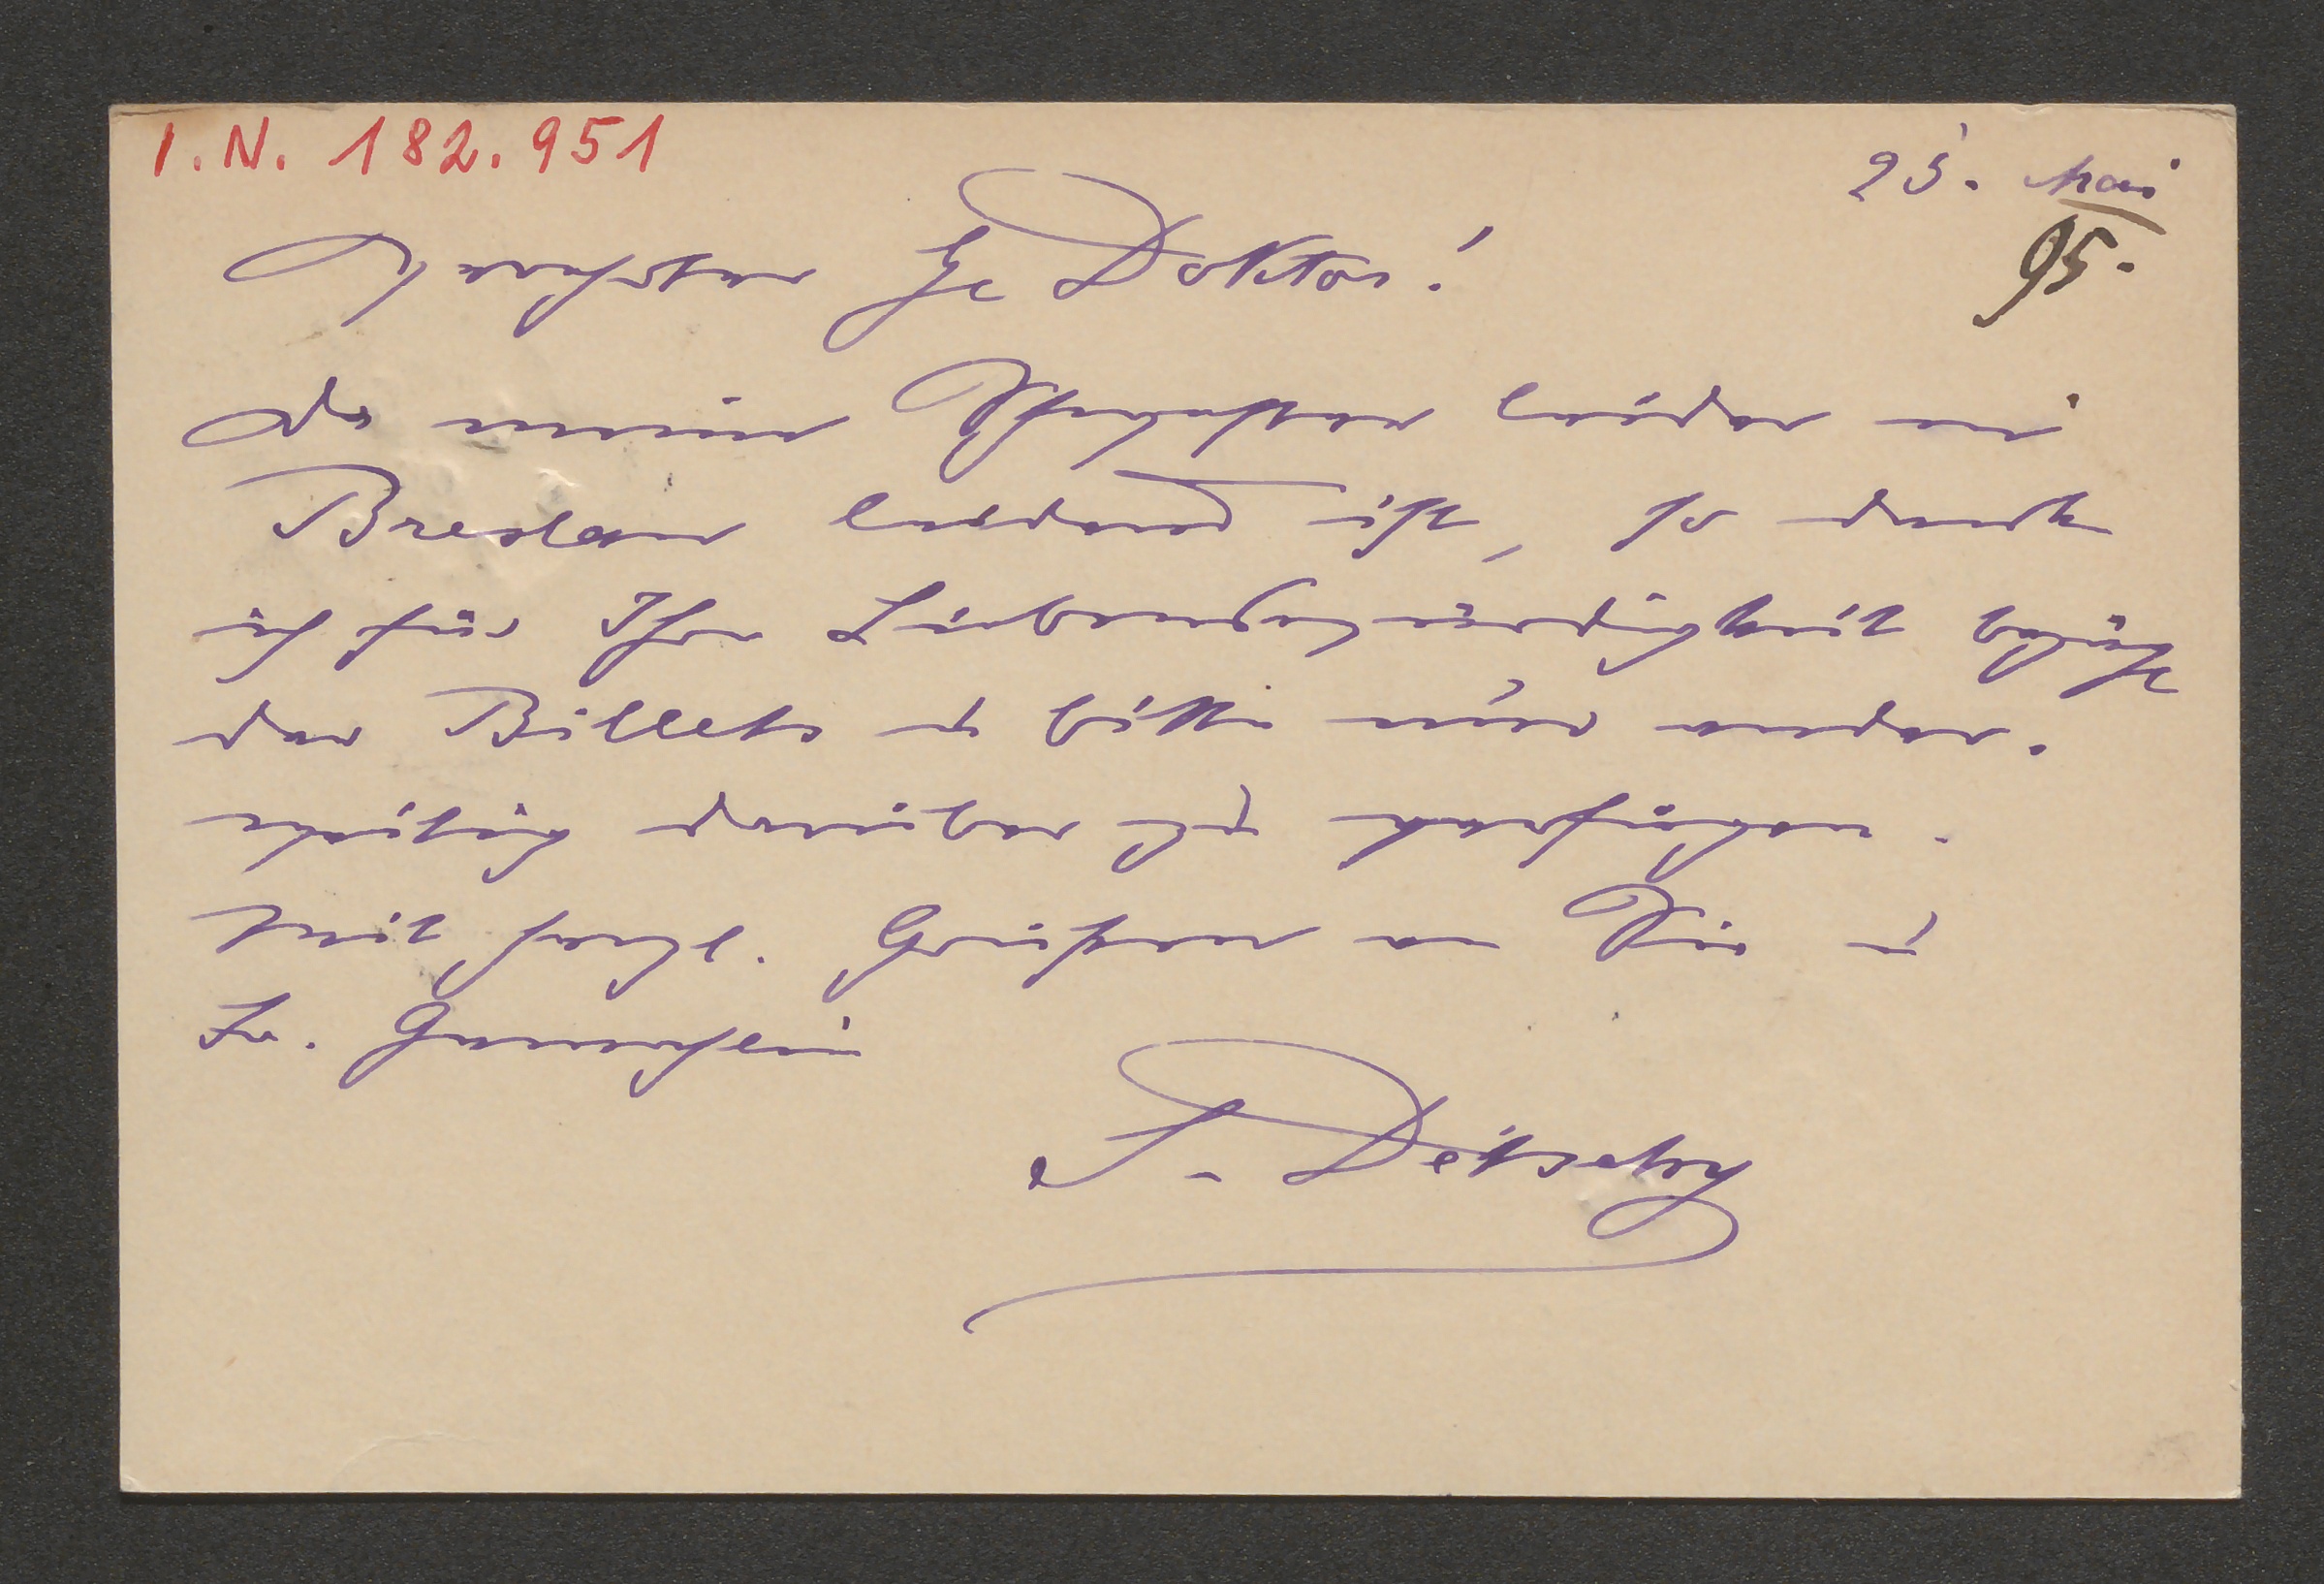 I. N. 182.951
25. Mai
95.
Verehrter Hr Doktor!
Da meine Schwester leider in
Breslau leidend ist, so danke
ich für Ihre Liebenswürdigkeit bezügl
der Billets u bitte nur ander-
weitig darüber zu verfügen.
Mit herzl. Grüßen an Sie u
Fr. Gemahlin
S. Deitschy